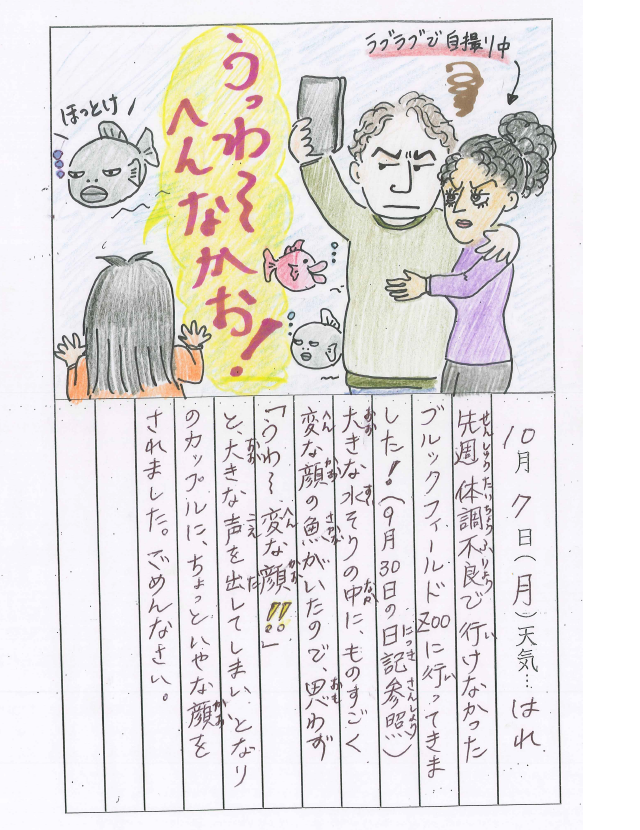 ラブラブで自撮り中
うっわ〜〜
へんなかお!
ほっとけ
10月7日(月)天気…はれ
先週体調不良で行けなかった
ブルックフィールドZOOに行ってきま
した!(9月30日の日記参照)
大きな水そうの中に、ものすごく
変な顔の魚がいたので、思わず
「うわ〜、変な顔!!」
と、大きな声を出してしまい、となり
のカップルに、ちょっといやな顔を
されました。ごめんなさい。